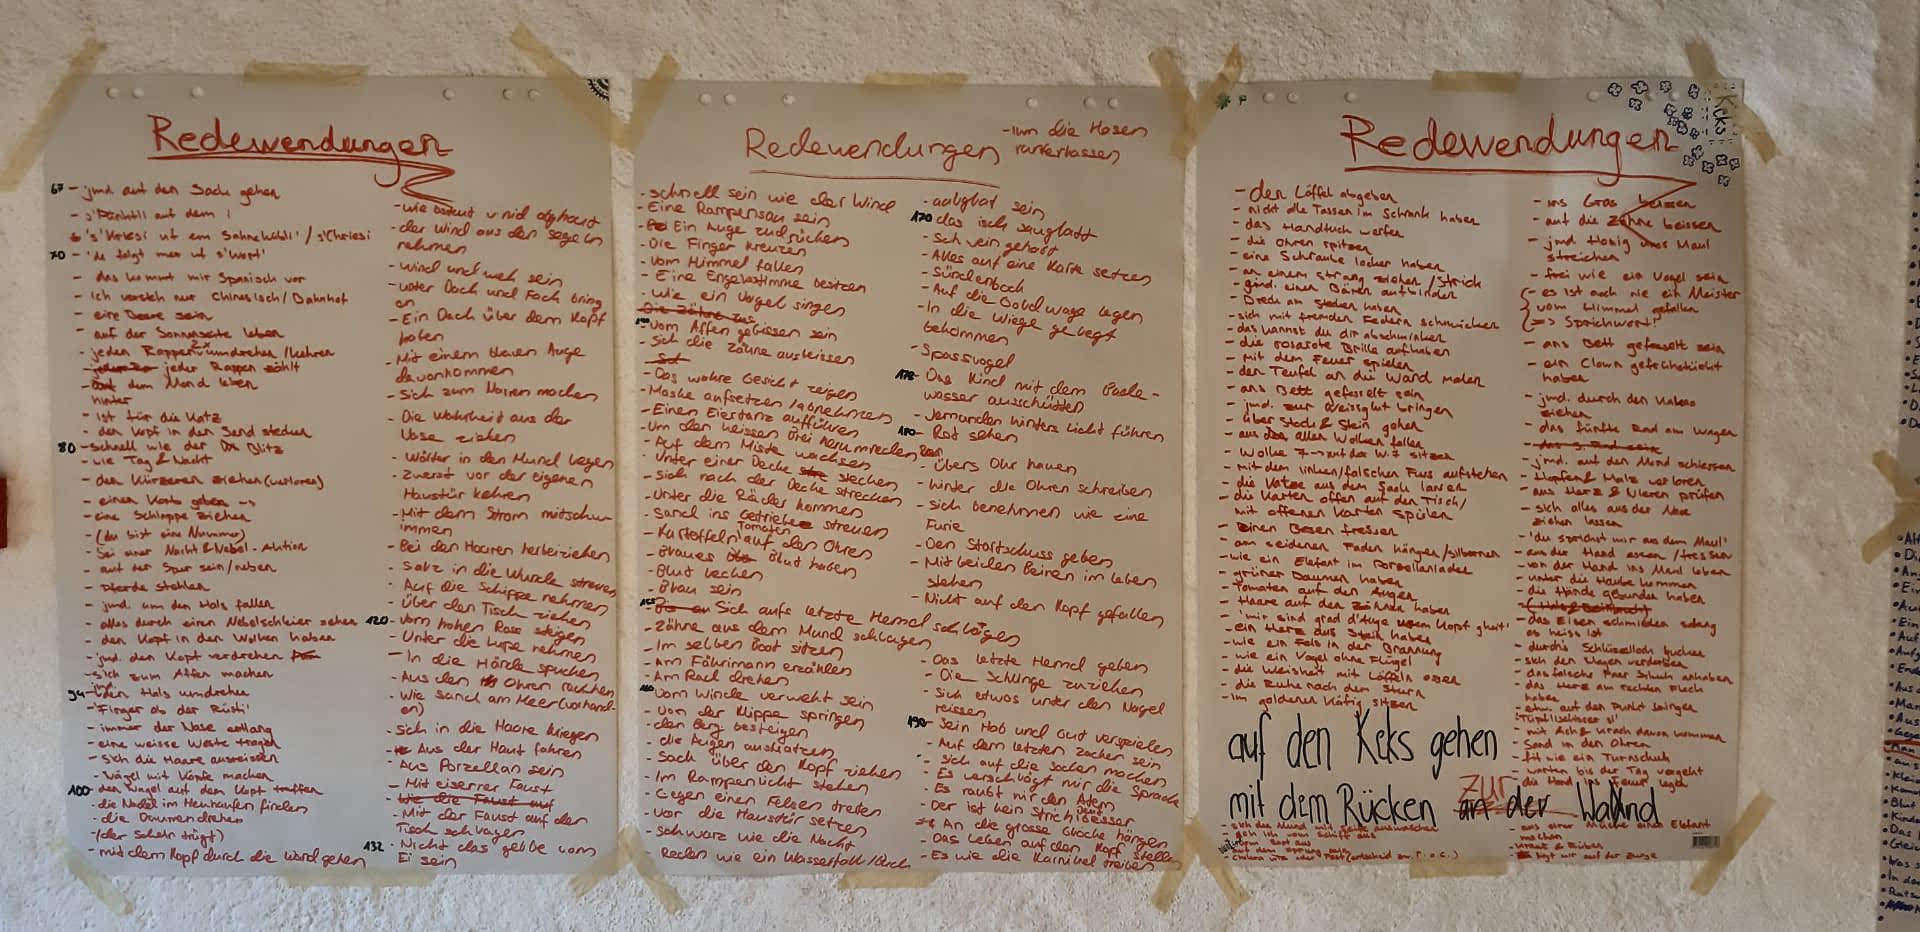 Redewendungen
67 - jmd auf den Sack gehen
- s'Pünktli auf dem i
70 - 'de folgt men uf s'Wort'
- das kommt mir Spanisch vor
- Ich versteh nur Chinesisch/Bahnhof
- auf der Sonnenseite leben
- jeden Rappen umdrehen /kehren
jeder Rappen zählt
dem Mond leben
hinter
- ist für die Katz
- den Kopf in den Sand stecken
80 - schnell wie der Blitz
- wie Tag & Nacht
- den Kürzeren ziehen (verlores)
- einen Korb geben
- eine Schlappe ziehen
- (du bist eine Nummer)
- Bei einer Nacht & Nebel-Aktion
- auf der Spur sein/neben
- Pferde stehlen
- jmd um den Hals fallen
- alles durch einen Nebelschleier sehen
- den Kopf in den Wolken haben
- jmd den Kopf verdrehen
- sich zum Affen machen
94 - den Hals umdrehen
- 'Finger ab der Rösti'
- immer der Nase entlang
- eine weisse Weste tragen
- sich die Haare ausreissen
- Nägel mit Köpfe machen
100 - den Nagel auf dem Kopf treffen
- die Nadel im Heuhaufen finden
- die Daumen drehen
- (der Schein trügt)
- mit dem Kopf durch die Wand gehen
- der Wind aus den Segeln
nehmen
- Wind und weh sein
- unter Dach und Fach bring
en
- Ein Dach über dem Kopf
haben
- Mit einem blauen Auge
davonkommen
- Sich zum Narren machen
- Die Wahrheit aus der
Nase ziehen
- Wörter in den Mund legen
- Zuerst vor der eigenen
Haustür kehren
- Mit dem Strom mitschw-
immen
- Bei den Haaren herbeiziehen
- Salz in die Wunde streuen
- Auf die Schippe nehmen
- Über den Tisch ziehen
120 - Vom hohen Ross steigen
- Unter die Lupe nehmen
- In die Hände spucken
- Aus den Ohren rauchen
- Wie Sand am Meer (vorhand-
en)
- Sich in die Haare kriegen
- Aus der Haut fahren
- Aus Porzellan sein
- Mit eiserner Faust
- Wie die Faust auf
- Mit der Faust auf den
Tisch schlagen
132 - Nicht das gelbe vom
Ei sein
Redewendungen
- die Hosen
runterlassen
- schnell sein wie der Wind
- Eine Rampensau sein
- Ein Auge zudrücken
- Die Finger kreuzen
- Vom Himmel fallen
- Eine Engelsstimme besitzen
- Wie ein Vogel singen
- Vom Affen gebissen sein
- Sich die Zähne ausbeissen
- Das wahre Gesicht zeigen
- Maske aufsetzen /abnehmen
- Einen Eiertanz aufführen
- Um den heissen Brei herumreden
- Auf dem Miste wachsen
- Unter einer Decke stecken
- Sich nach der Decke strecken
- Unter die Räder kommen
- Sand ins Getriebe streuen
- Kartoffeln Tomaten auf den Ohren
- Blaues Blut haben
- Blut lecken
- Blau sein
- Sich aufs letzte Hemd schlagen
- Zähne aus dem Mund schlagen
- Im selben Boot sitzen
- Am Rad drehen
- Vom Winde verweht sein
- Von der Klippe springen
- den Berg besteigen
- die Augen auskratzen
- Sack über den Kopf ziehen
- Im Rampenlicht stehen
- Gegen einen Felsen treten
- Vor die Haustür setzen
- schwarz wie die Nacht
- Reden wie ein Wasserfall/Buch
170 - das isch sauglatt
- Schwein gehabt
- Alles auf eine Karte setzen
- Sündenbock
- Auf die Goldwaage legen
- In die Wiege gelegt
bekommen
- Spassvogel
178 - Das Kind mit dem Bade-
wasser ausschütten
- Jemanden hinters Licht führen
180 - Rot sehen
- Übers Ohr hauen
- Hinter die Ohren schreiben
- sich benehmen wie eine
Furie
- Den Startschuss geben
- Mit beiden Beinen im Leben
stehen
- Nicht auf den Kopf gefallen
- Das letzte Hemd geben
- Die Schlinge zuziehen
- Sich etwas unter den Nagel
reissen
190 - Sein Hab und Gut verspielen
- Auf dem letzten Zacken sein
- sich auf die Socken machen
- Es verschlägt mir die Sprache
- Es raubt mir den Atem
- Der ist kein Strich besser
- An die grosse Glocke hängen
- Das Leben auf den Kopf stellen
- Es wie die Karnikel treiben
Redewendungen
Keks
- den Löffel abgeben
- nicht alle Tassen im Schrank haben
- das Handtuch werfen
- die Ohren spitzen
- eine Schraube locker haben
- an einem Strang ziehen /Strick
- jmd. einen Bären aufbinden
- Dreck am Stecken haben
- sich mit fremden Federn schmücken
- das kannst du dir abschminken
- die rosarote Brille aufhaben
- mit dem Feuer spielen
- den Teufel an die Wand malen
- ans Bett gefesselt sein
- jmd. zur Weissglut bringen
- über Stock & Stein gehen
- aus allen Wolken fallen
- Wolke 7 → auf der W.7 sitzen
- mit dem linken/falschen Fuss aufstehen
- die Katze aus dem Sack lassen
- die Karten offen auf den Tisch/
mit offenen Karten spielen
- einen Besen fressen
- am seidenen Faden hängen/silbernen
- wie ein Elefant im Porzellanladen
- grüner Daumen haben
- Tomaten auf den Augen
- Haare auf den Zähnen haben
- ein Herz aus Stein haben
- wie ein Fels in der Brannung
- wie ein Vogel ohne Flügel
- die Weisheit mit Löffeln essen
- die Ruhe nach dem Sturm
- im goldenen Käfig sitzen
auf den Keks gehen
mit dem Rücken an der Wand
zur
- ins Gras beissen
- auf die Zähne beissen
- jmd Honig ums Maul
streichen
- frei wie ein Vogel sein
- es ist noch nie ein Meister
vom Himmel gefallen
=> Sprichwort!
- ans Bett gefesselt sein
- ein Clown gefrühstückt
haben
- jmd. durch den Kakao
ziehen
- das fünfte Rad am Wagen
- das 5. Rad sein
- Hopfen & Malz verloren
- aus Herz & Nieren prüfen
- sich alles aus der Nase
ziehen lassen
- 'du sprichst mir aus dem Maul'
- aus der Hand essen /fressen
- von der Hand ins Maul leben
- unter die Haube kommen
- die Hände gebunden haben
- das Eisen schmieden solang
es heiss ist
- durchs Schlüsselloch gucken
- sich den Magen verderben
- das falsche Paar Schuh anhaben
- das Herz am rechten Fleck
haben
- etw. auf den Punkt bringen
- mit Ach & Krach davon kommen
- Sand in den Ohren
- fit wie ein Turnschuh
- warten bis der Tag vergeht
- die Hand ins Feuer legen
- aus einer Mücke eine Elefant
machen
- Kraut & Rüben